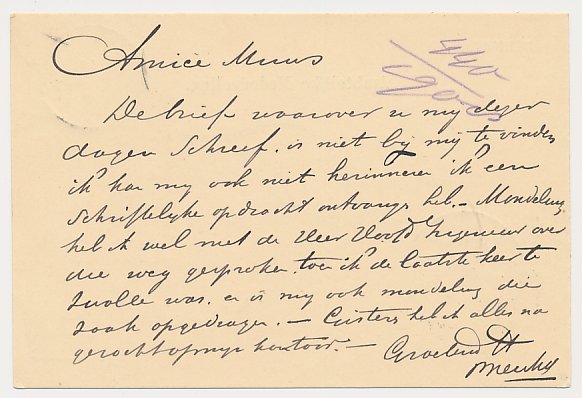 Amice Muus
440
/1900
De brief waarover u mij dezer
dagen schreef, is niet bij mij te vinden
ik kan mij ook niet herinneren ik een
schriftelijke opdracht ontvangen heb. - Mondeling
heb ik wel met de Heer Hoofd Ingenieur over
die weg gesproken toen ik de laatste keer te
Zwolle was. en is mij ook mondeling die
zaak opgedragen. - heb ik alles na
gezocht op mijn kantoor. -
Groetend